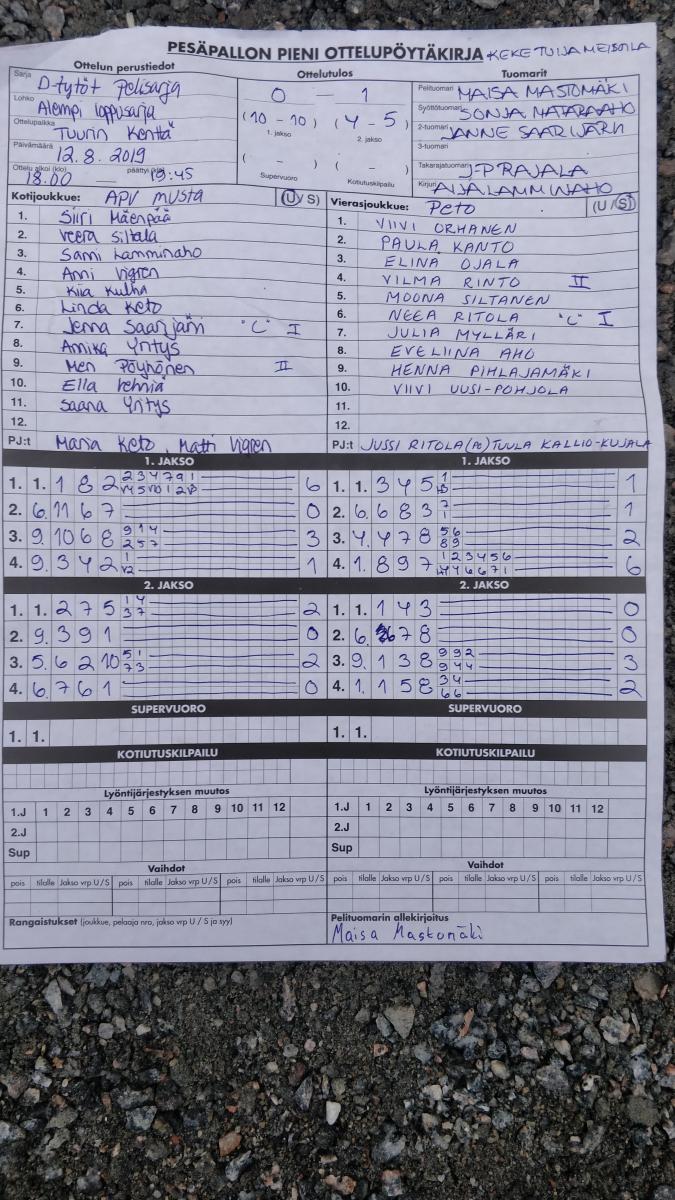 PESÄPALLON PIENI OTTELUPÖYTÄKIRJA KEKE TUIJA MEISOLA
Ottelun perustiedot
Sarja D-tytöt Pelisarja
Lohko Alempi loppusarja
Ottelupaikka Tuurin Kenttä
Päivämäärä 12.8. 2019
Ottelu alkoi (klo) 18.00 päättyi 19:45
Ottelutulos
0 — 1
(10 - 10) (4 - 5)
1. jakso 2. jakso
( - ) ( - )
Supervuoro Kotiutuskilpailu
Tuomarit
Pelituomari MAISA MASTOMÄKI
Syöttötuomari SONJA
2-tuomari JANNE SAARIJÄRVI
3-tuomari
Takarajatuomari J-P RAJALA
Kirjuri AIJA LAMMINAHO
Kotijoukkue: APV musta (U/S)
1. Siiri Mäenpää
2. Veera Siltala
3. Sami Lamminaho
4. Anni Vigren
5. Kiia Kulha
6. Linda Keto
7. Jenna Saarijärvi "C" I
8. Annika Yritys
9. Meri Pöyhönen II
10. Ella
11. Saana Yritys
12.
PJ:t Marja Keto, Matti Vigren
Vierasjoukkue: Peto (U/S)
1. VIIVI ORHANEN
2. PAULA KANTO
3. ELINA OJALA
4. VILMA RINTO II
5. MOONA SILTANEN
6. NEEA RITOLA "C" I
7. JULIA MYLLÄRI
8. EVELIINA AHO
9. HENNA PIHLAJAMÄKI
10. VIIVI UUSI-POHJOLA
11.
12.
PJ:t JUSSI RITOLA (PE) TUULA KALLIO-KUJALA
1. JAKSO
1. 1. 1 8 2 2 3 4 7 9 1 6
2. 6. 11 6 7 0
3. 9. 10 6 8 9 1 4 3
2 5 7
4. 9. 3 4 2 1 1
2. JAKSO
1. 1. 2 7 5 1 4 2
3 7
2. 9. 3 9 1 0
3. 5. 6 2 10 5 1 2
7 3
4. 6. 7 6 1 0
SUPERVUORO
1. 1.
KOTIUTUSKILPAILU
1. JAKSO
1. 1. 3 4 5 1 1
10
2. 6. 6 8 3 7 1
1
3. 4. 4 7 8 5 6 2
8 9
4. 1. 8 9 7 1 2 3 4 5 6 6
2. JAKSO
1. 1. 1 4 3 0
2. 6. 7 8 0
3. 9. 1 3 8 9 9 2 3
9 4 4
4. 1. 1 5 8 3 4 2
6 6
SUPERVUORO
1. 1.
KOTIUTUSKILPAILU
Lyöntijärjestyksen muutos
1.J 1 2 3 4 5 6 7 8 9 10 11 12
2.J
Sup
Lyöntijärjestyksen muutos
1.J 1 2 3 4 5 6 7 8 9 10 11 12
2.J
Sup
Vaihdot
pois tilalle Jakso vrp U/S pois tilalle Jakso vrp U/S pois tilalle Jakso vrp U/S
Vaihdot
pois tilalle Jakso vrp U/S pois tilalle Jakso vrp U/S pois tilalle Jakso vrp U/S
Rangaistukset (joukkue, pelaaja nro, jakso vrp U / S ja syy)
Pelituomarin allekirjoitus
Maisa Mastomäki